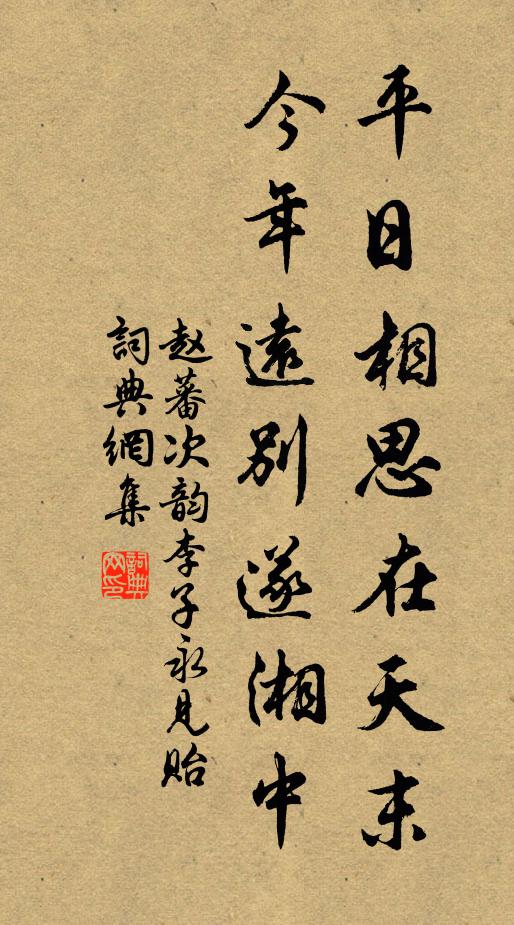 平日相思在天末
今年遠別遂湘中
赵蕃次韵李子永見貽
詞典網集
詞典網印